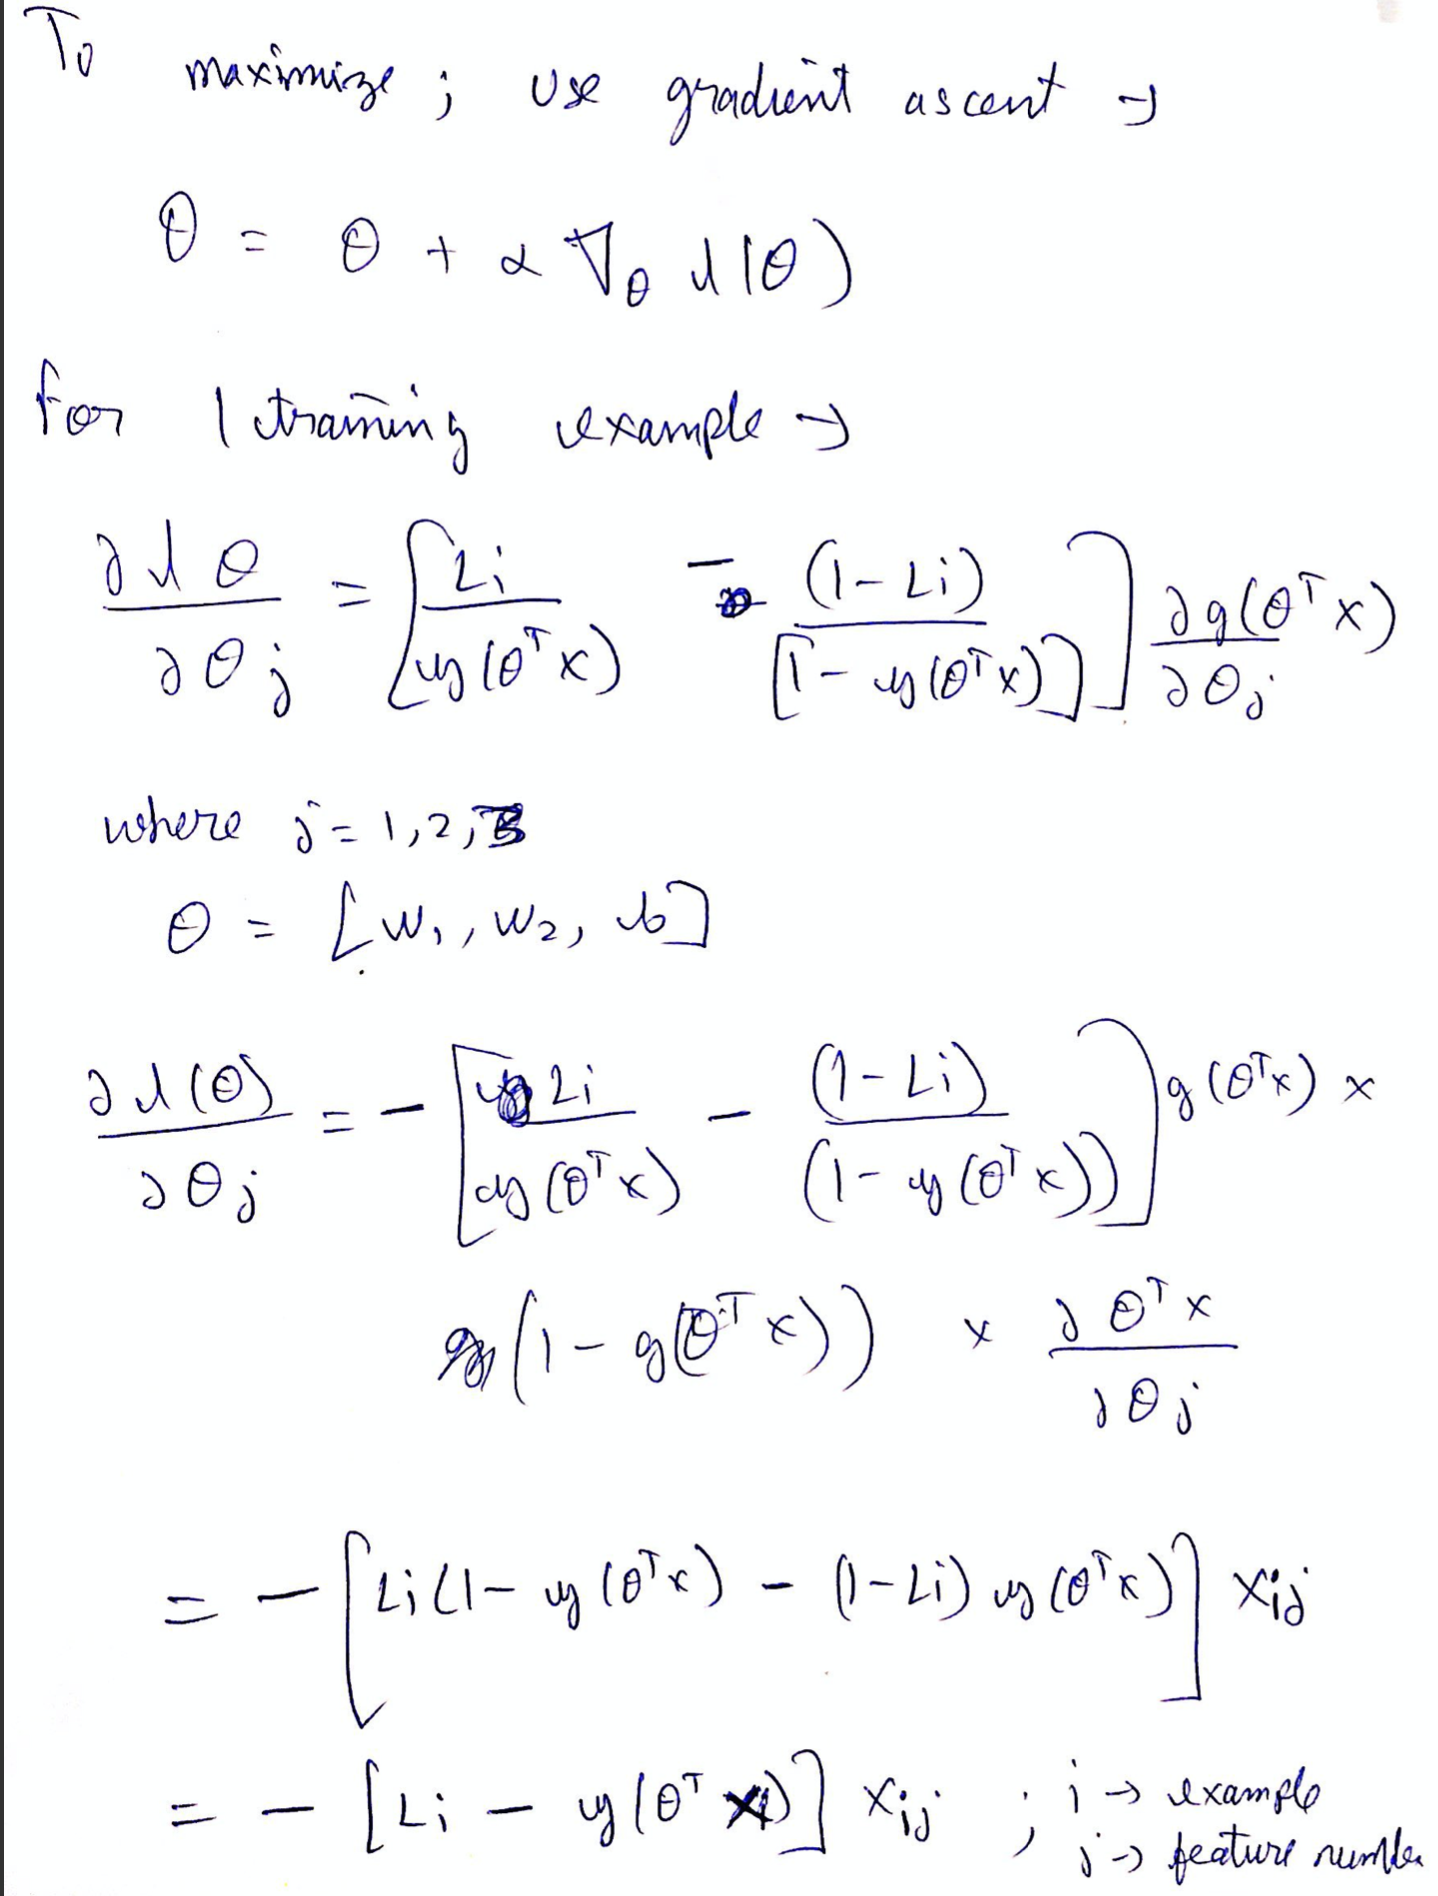 To maximize ; use gradient ascent →
θ = θ + α ∇θ l(θ)
for 1 training example →
∂lθ/∂θj = [Li/g(θᵀx) - (1-Li)/[1-g(θᵀx)]] ∂g(θᵀx)/∂θj
where j = 1,2,3
θ = [w₁, w₂, b]
∂l(θ)/∂θj = - [Li/g(θᵀx) - (1-Li)/(1-g(θᵀx))] g(θᵀx) ×
(1-g(θᵀx)) × ∂θᵀx/∂θj
= - [Li(1-g(θᵀx) - (1-Li) g(θᵀx)] xij
= - [Li - g(θᵀx)] xij ; i → example
j → feature number